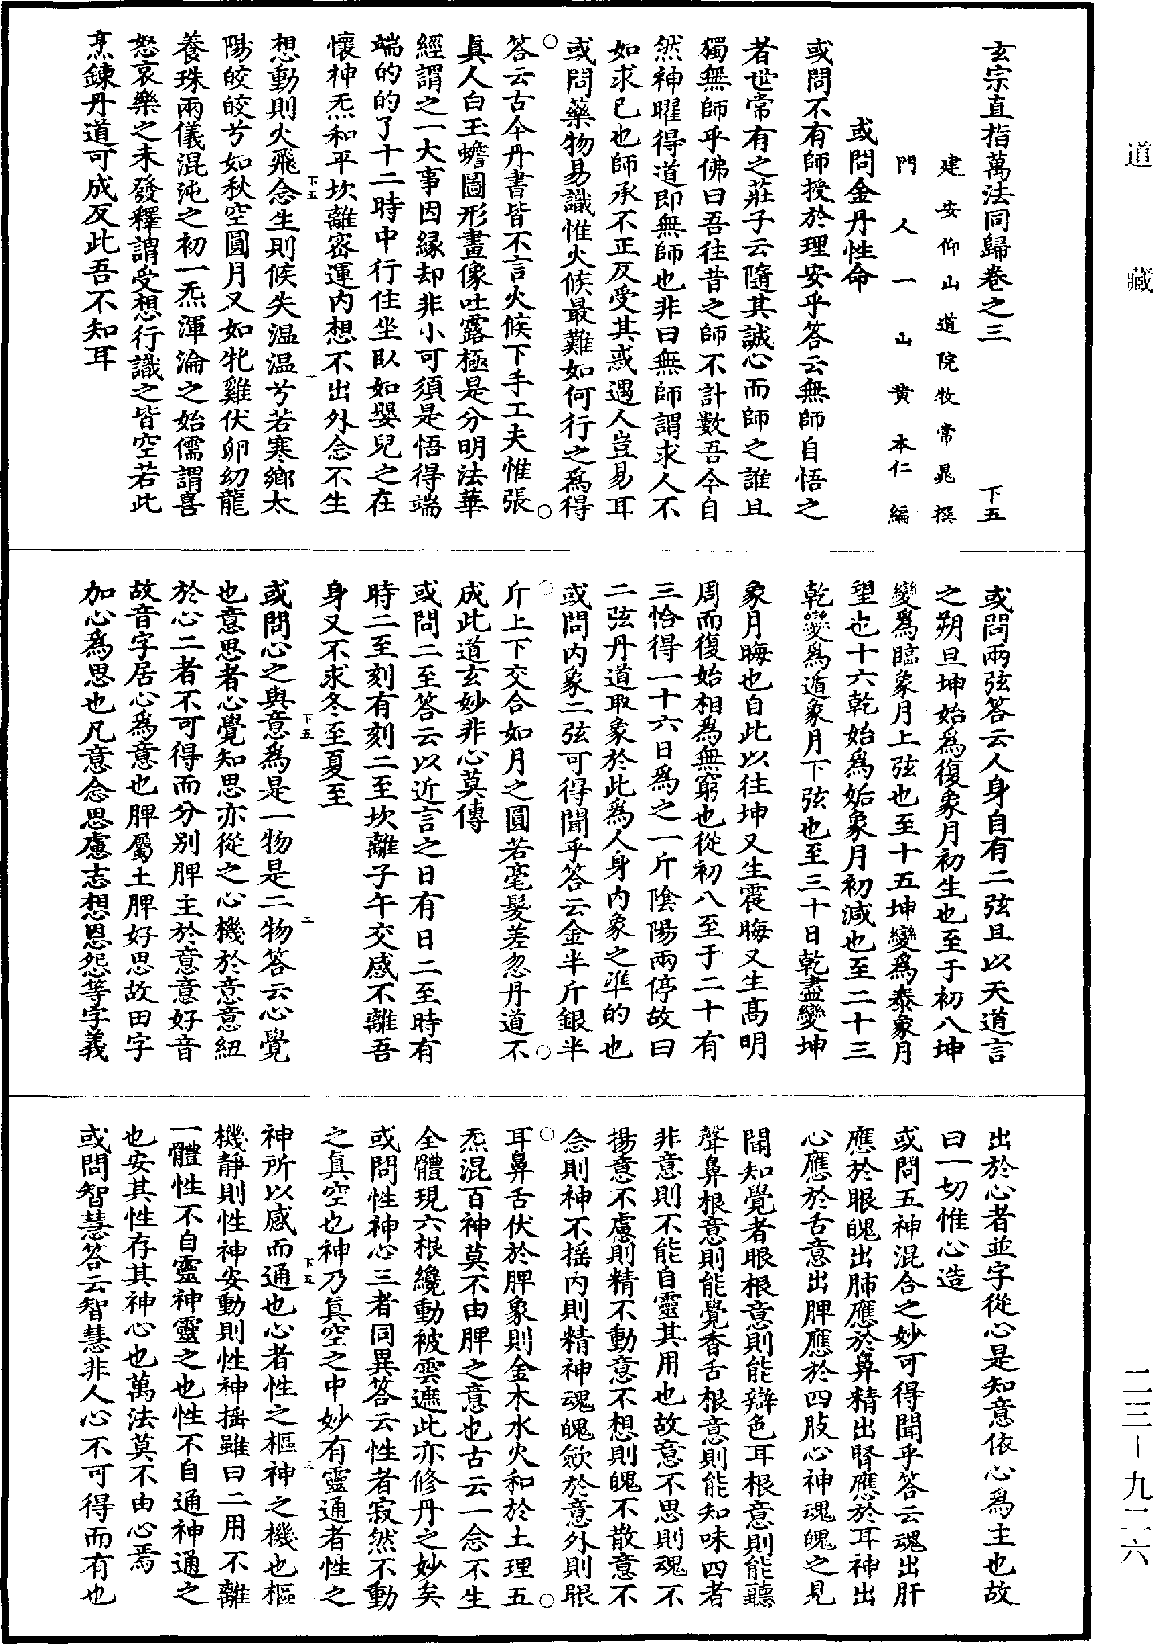 道藏
玄宗直指萬法同歸卷之三 下五
建安仰山道院牧常晁撰
門人一山黄本仁編
或問金丹性命
或問不有師授於理安乎答云無師自悟之
者世常有之莊子云隨其誠心而師之誰且
獨無師乎佛曰吾往昔之師不計數吾今自
然神曜得道即無師也非曰無師謂求人不
如求己也師承不正反受其惑遇人豈易耳
或問藥物易識惟火候最難如何行之爲得
答云古今丹書皆不言火候下手工夫惟張
真人白玉蟾圖形畫像吐露極是分明法華
經謂之一大事因縁却非小可須是悟得端
端的的了十二時中行住坐臥如嬰兒之在
懷神炁和平坎離密運内想不出外念不生
下五 一
想動則火飛念生則候失温温兮若寒鄉太
陽皎皎兮如秋空圓月又如牝雞伏卵幼龍
養珠兩儀混沌之初一炁渾淪之始儒謂喜
怒哀樂之未發釋謂受想行識之皆空若此
烹鍊丹道可成反此吾不知耳
或問兩弦答云人身自有二弦且以天道言
之朔旦坤始爲復象月初生也至于初八坤
變爲臨象月上弦也至十五坤變爲泰象月
望也十六乾始爲姤象月初減也至二十三
乾變爲遁象月下弦也至三十日乾盡變坤
象月晦也自此以往坤又生震晦又生髙明
周而復始相爲無窮也從初八至于二十有
三恰得一十六日爲之一斤陰陽兩停故曰
二弦丹道取象於此爲人身内象之準的也
或問内象二弦可得聞乎答云金半斤銀半
斤上下交合如月之圓若毫髮差忽丹道不
成此道玄妙非心莫傳
或問二至答云以近言之日有日二至時有
時二至刻有刻二至坎離子午交感不離吾
身又不求冬至夏至
下五 二
或問心之與意爲是一物是二物答云心覺
也意思者心覺知思亦從之心機於意意紐
於心二者不可得而分别脾主於意意好音
故音字居心爲意也脾屬土脾好思故田字
加心爲思也凡意念思慮志想恩怨等字義
出於心者並字從心是知意依心爲主也故
曰一切惟心造
或問五神混合之妙可得聞乎答云魂出肝
應於眼魄出肺應於鼻精出腎應於耳神出
心應於舌意出脾應於四肢心神魂魄之見
聞知覺者眼根意則能辯色耳根意則能聽
聲鼻根意則能覺香舌根意則能知味四者
非意則不能自靈其用也故意不思則魂不
揚意不慮則精不動意不想則魄不散意不
念則神不揺内則精神魂魄歛於意外則眼
耳鼻舌伏於脾象則金木水火和於土理五
炁混百神莫不由脾之意也古云一念不生
全體現六根纔動被雲遮此亦修丹之妙矣
或問性神心三者同異答云性者寂然不動
之真空也神乃真空之中妙有靈通者性之
下五 三
神所以感而通也心者性之樞神之機也樞
機靜則性神安動則性神揺雖曰二用不離
一體性不自靈神靈之也性不自通神通之
也安其性存其神心也萬法莫不由心焉
或問智慧答云智慧非人心不可得而有也
二三—九二六